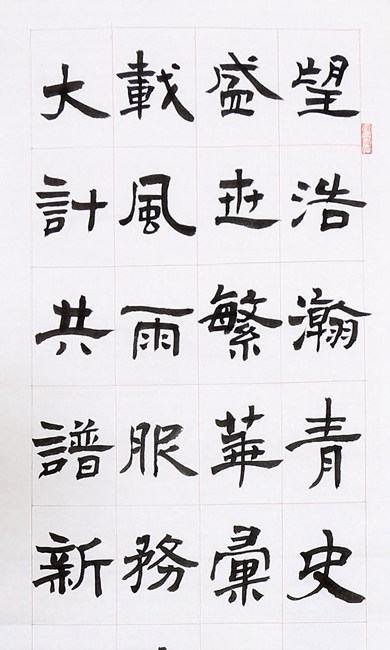 望浩瀚青史
盛世繁華彙
載風雨服務
大計共譜新